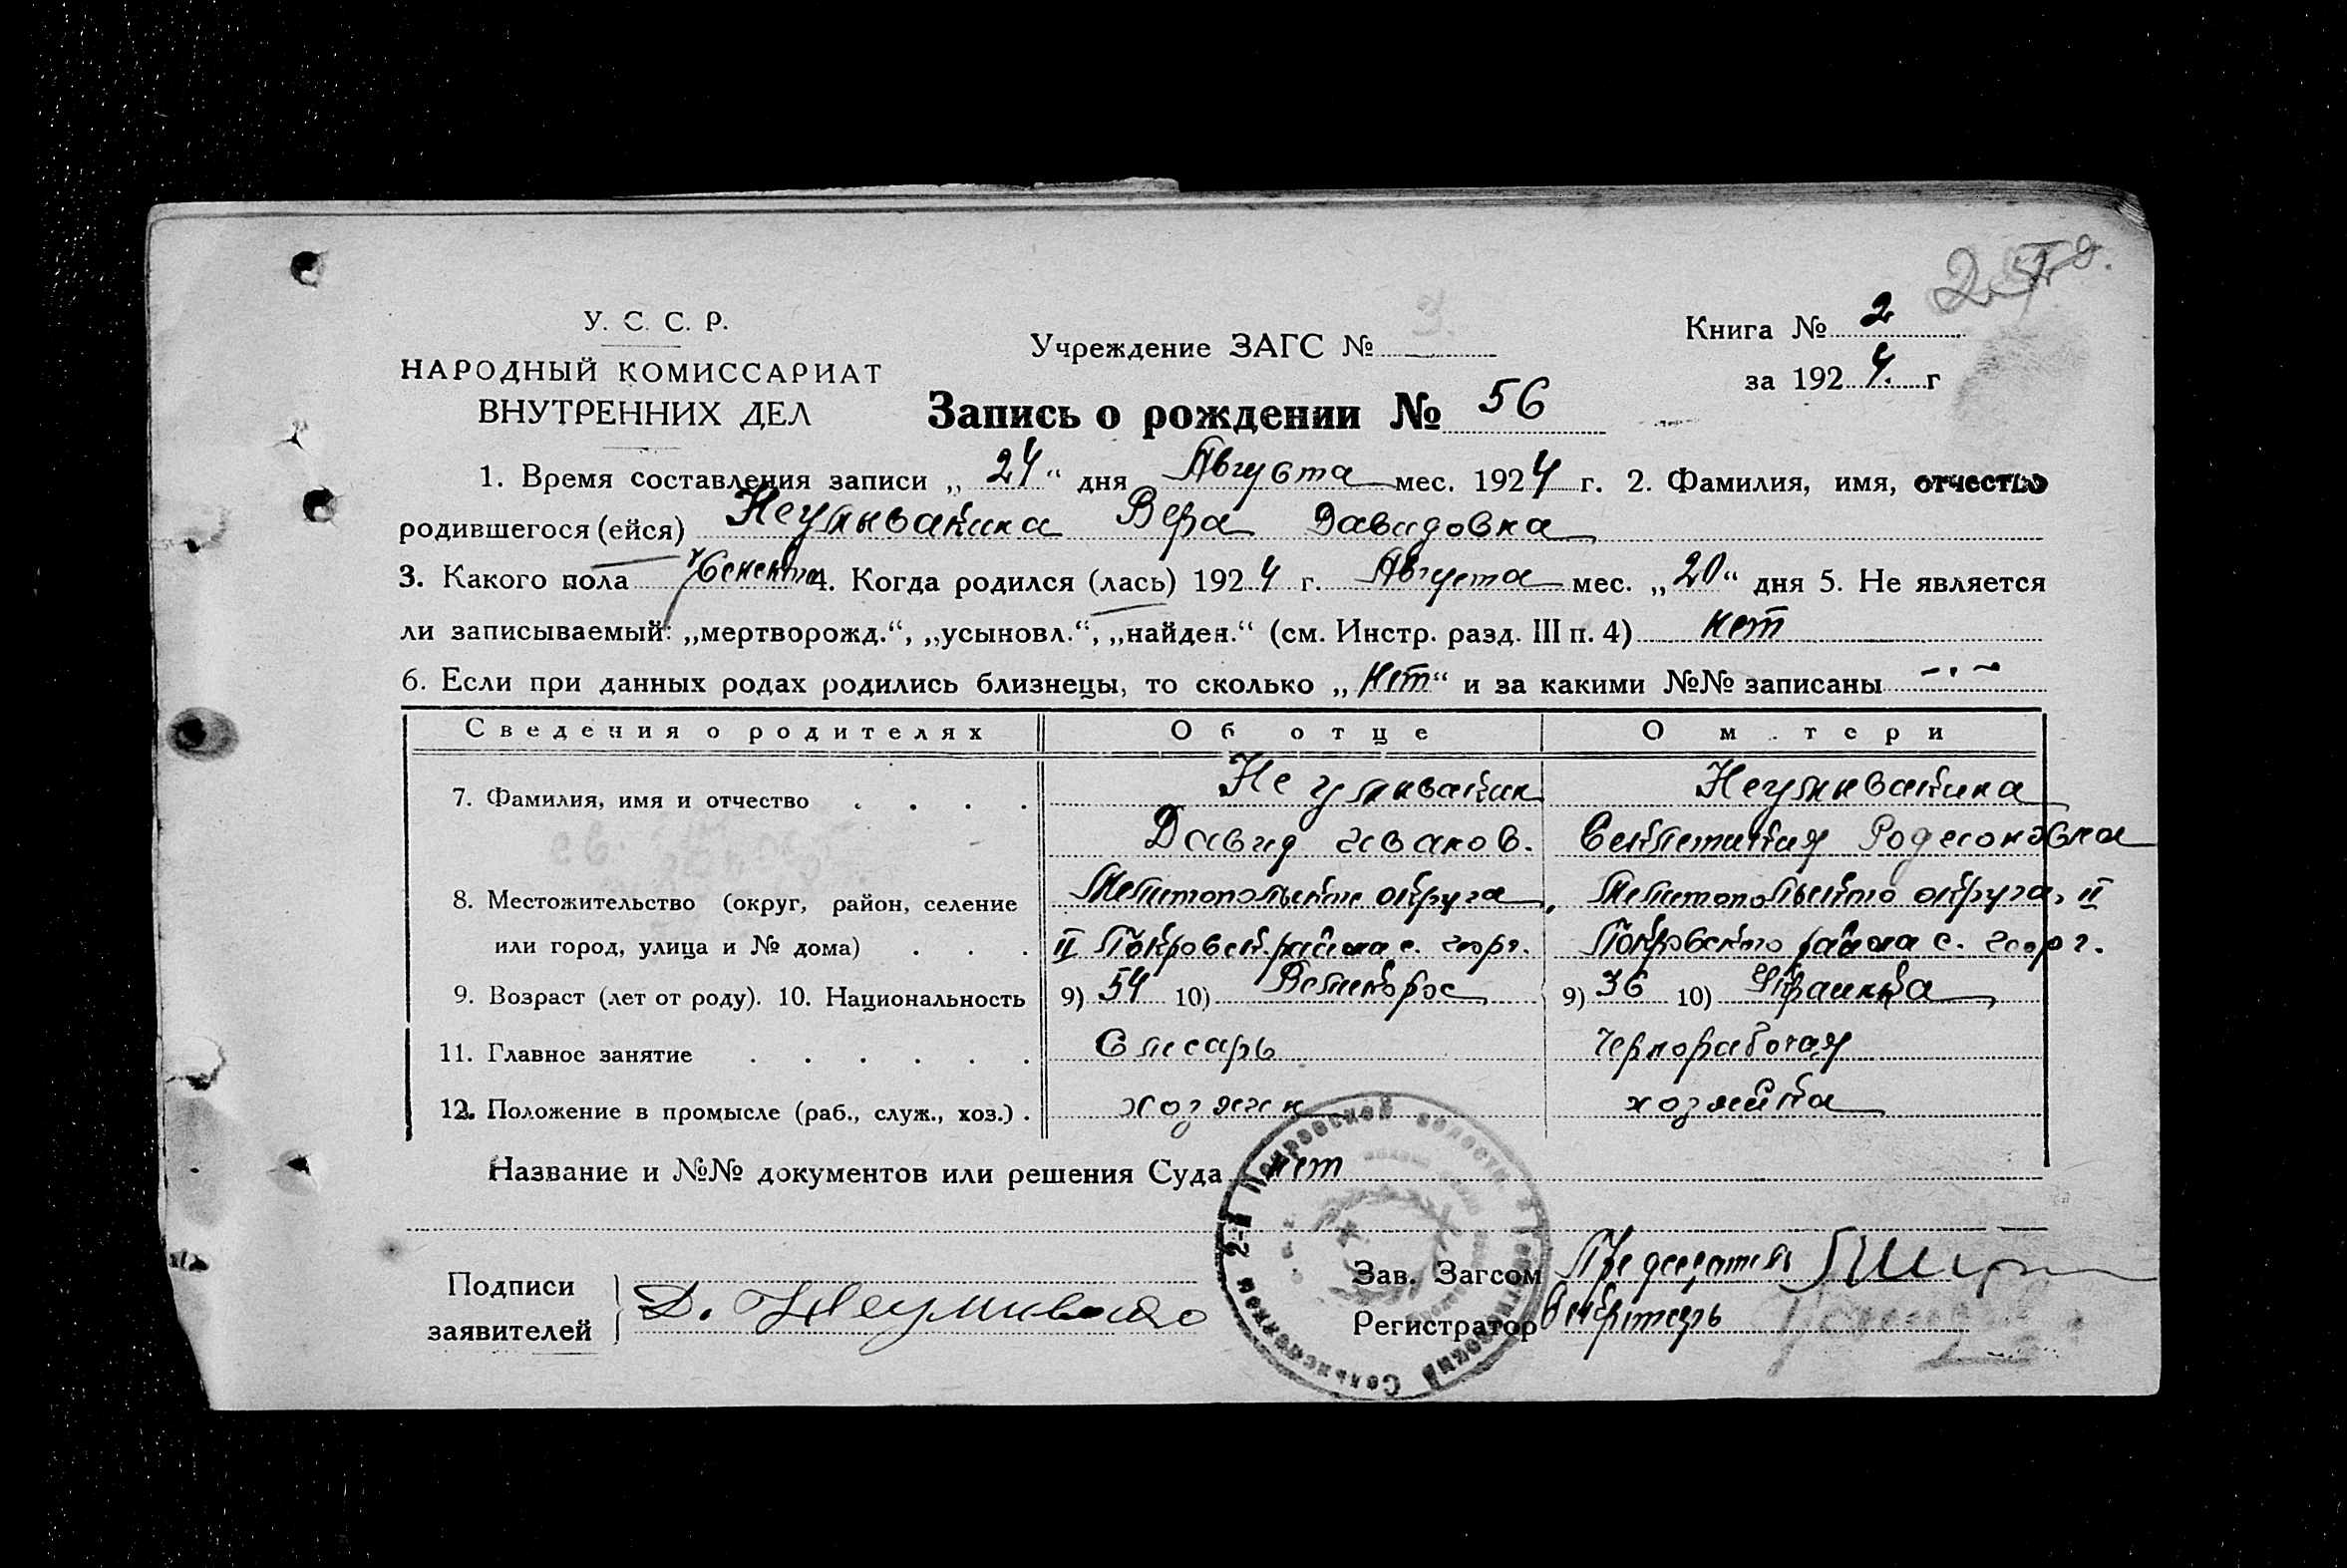 25 г.
У. С. С. Р.
НАРОДНЫЙ КОМИССАРИАТ
ВНУТРЕННИХ ДЕЛ
Учреждение ЗАГС № 3.
Книга № 2
за 1924. г
Запись о рождении № 56
1. Время составления записи „ 24 “ дня Августа мес. 1924 г. 2. Фамилия, имя, отчество
родившегося (ейся) Неумывакина Вера Давидовна
3. Какого пола Женского 4. Когда родился (лась) 1924 г. Августа мес. „20“ дня 5. Не является
ли записываемый: „мертворожд.“, „усыновл.“, „найден.“ (см. Инстр. разд. III п. 4) нет
6. Если при данных родах родились близнецы, то сколько „нет“ и за какими №№ записаны
Сведения о родителях Об отце О м тери
7. Фамилия, имя и отчество Неумывакин Неумывакина
Давид иванов. Родионовна
8. Местожительство (округ, район, селение Мелитопольского округа, Мелитопольского округа, II
или город, улица и № дома) II Покровск. района с. георг. Покровского района с. георг.
9. Возраст (лет от роду). 10. Национальность 9) 54 10) Великорос 9) 36 10) Украинка
11. Главное занятие Слесарь Чернорабочая
12. Положение в промысле (раб., служ., хоз.) хозяин хозяйка
Название и №№ документов или решения Суда нет
2-й Покровской волости Георгиевский Сельисполком
Подписи
заявителей
Д. Неумывако
Зав. Загсом Председатель
Регистратор Секретарь